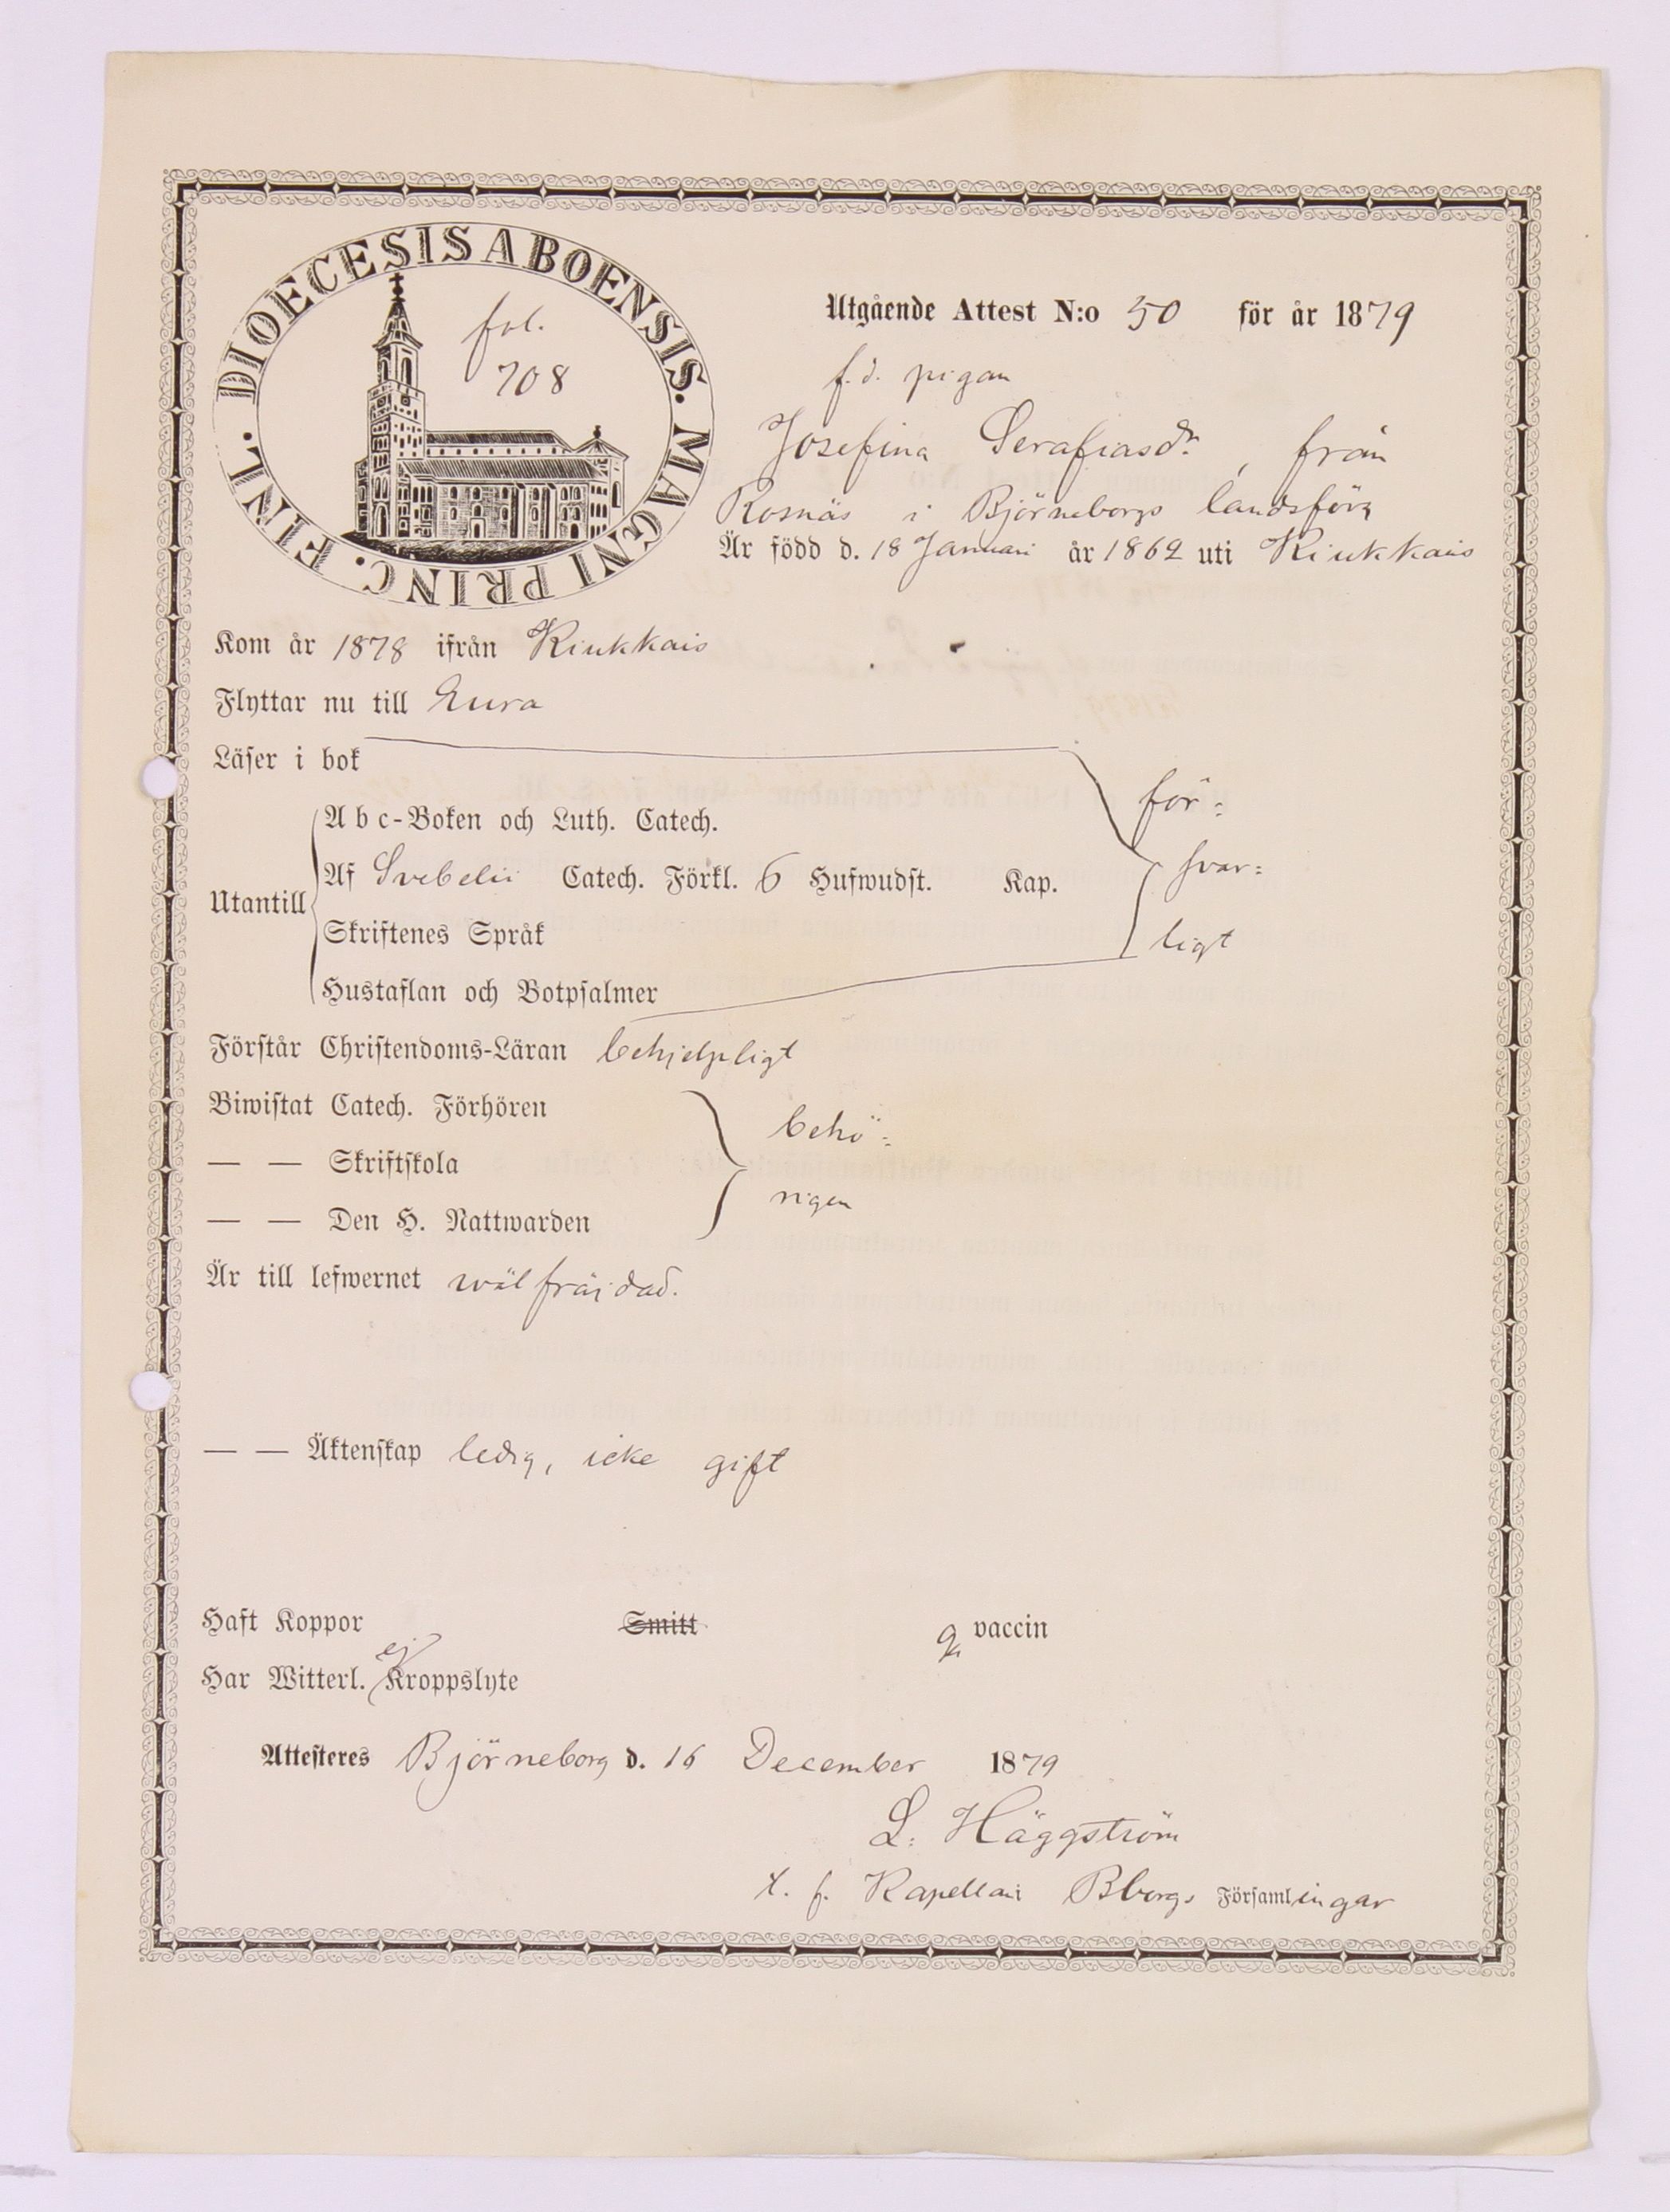 DIOECESIS ABOENSIS. MAGNI PRINC. FINL.
fol.
708
Utgående Attest N:o 50 för år 1879
f.d. pigan
Josefina Serafiasdr, från
Rosnäs i Björneborgs landsförs
Är född d. 18 Januari år 1862 uti Kiukkais
Kom år 1878 ifrån Kiukkais
Flyttar nu till Eura
Läser i bok
Utantill
Abc-Boken och Luth. Catech.
Af Svebelii Catech. Förkl. 6 Hufwudst. Kap.
Skriftenes Språk
Hustaflan och Botpsalmer
för=
svar=
ligt
Förstår Christendoms-Läran behjelpligt
Biwistat Catech. Förhören
— — Skriftskola
— — Den H. Nattwarden
behö=
rigen
Är till lefwernet wälfräjdad.
— — Äktenskap ledig, icke gift
Haft Koppor Smitt vaccin
Har Witterl. ej Kroppslyte
Attesteres Björneborg d. 16 December 1879
L. Häggström
t. f. Kapellan Bborgs Församlingar